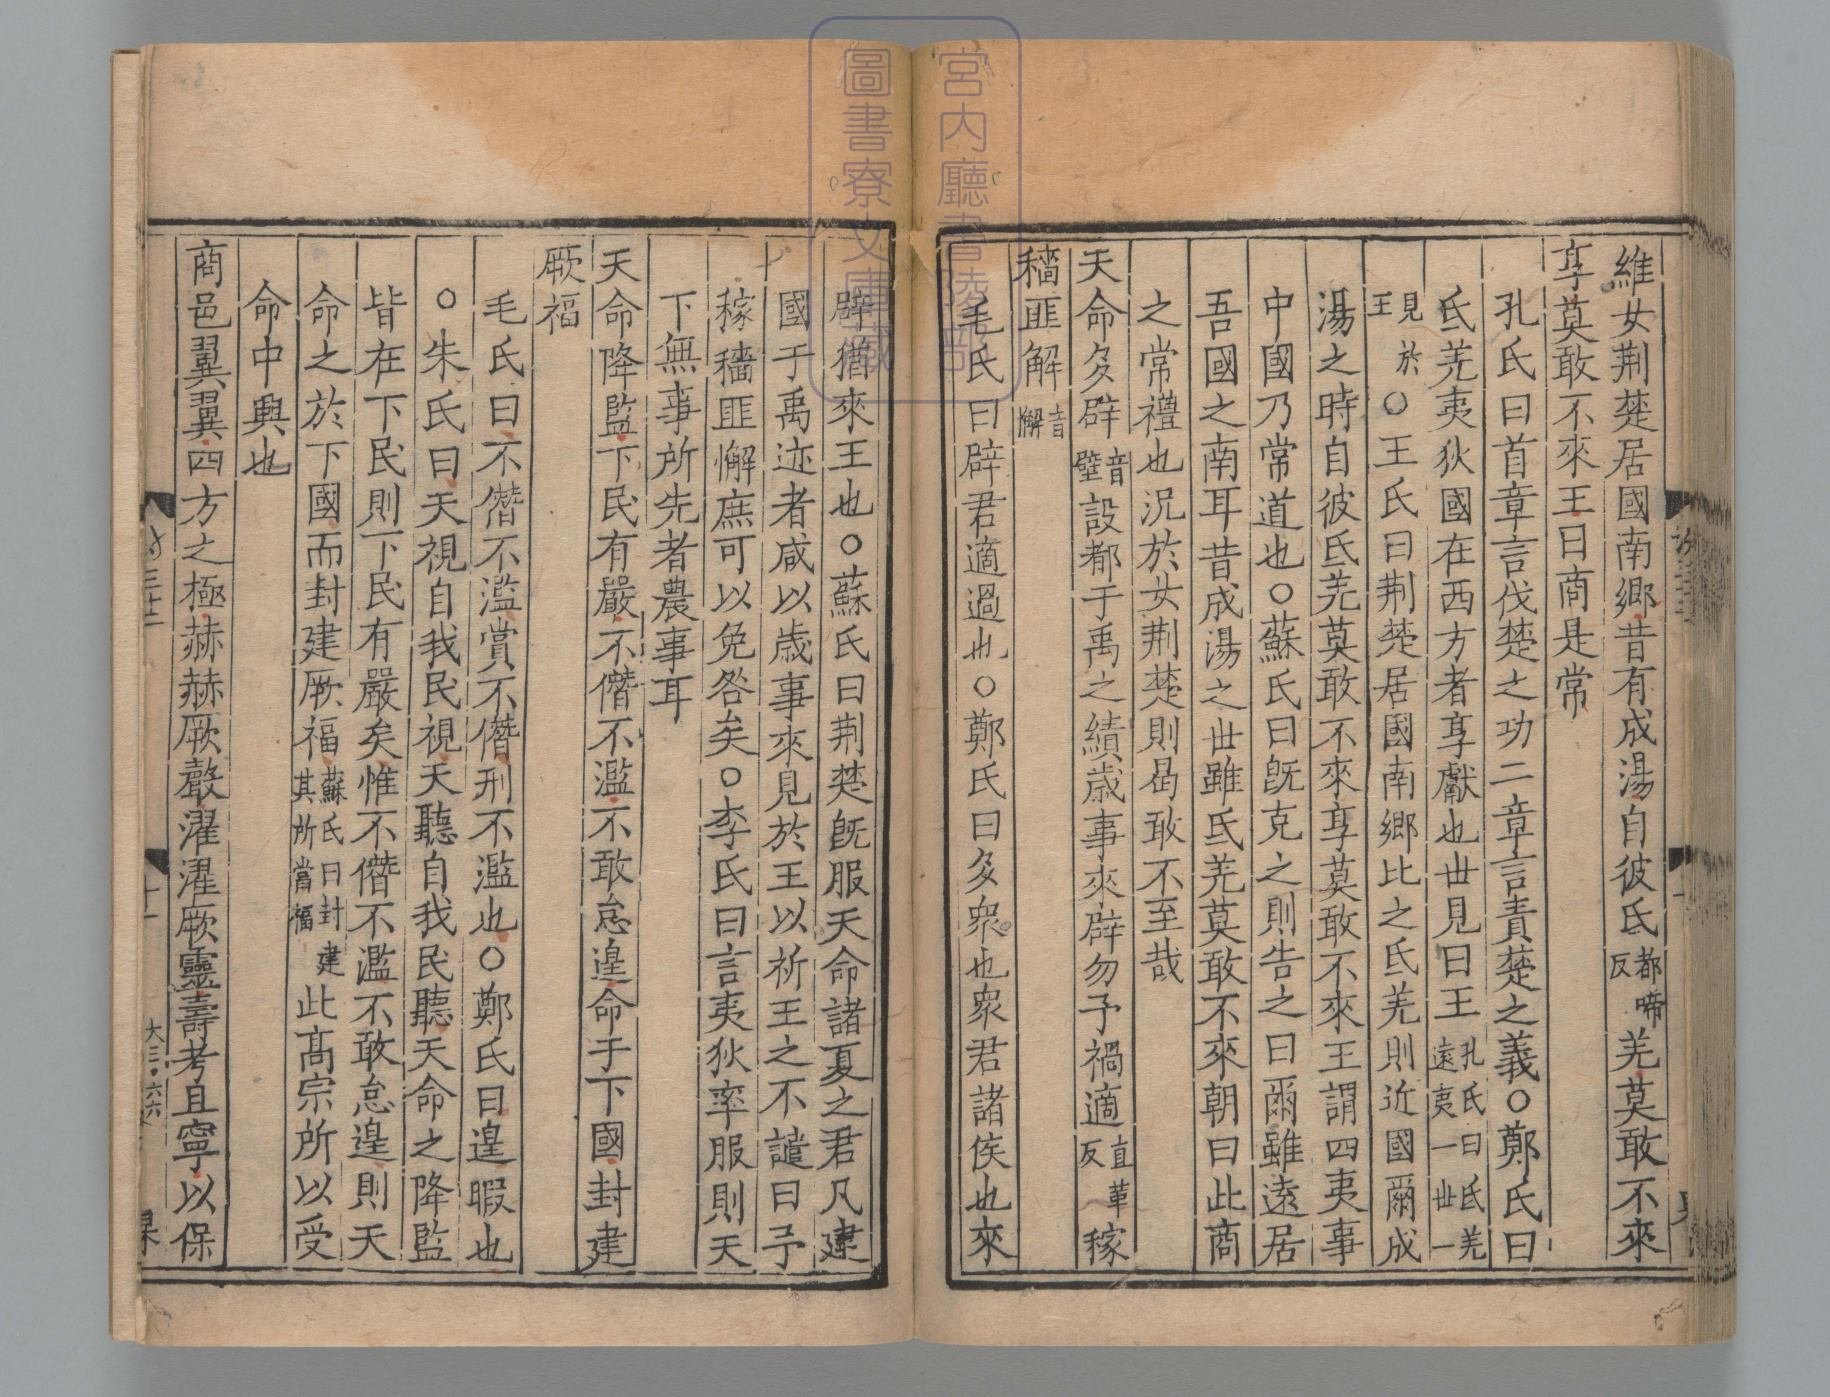 維女荆楚居國南鄉昔有成湯自彼氐都啼反羌莫敢不來
享莫敢不來王曰商是常
孔氏曰首章言伐楚之功二章言責楚之義○鄭氏曰
氐羌夷狄國在西方者享獻也世見曰王孔氏曰氐羌遠夷一世一
見於王○王氏曰荆楚居國南鄉比之氐羌則近國爾成
湯之時自彼氐羌莫敢不來享莫敢不來王謂四夷事
中國乃常道也○蘇氏曰旣克之則告之曰爾雖遠居
吾國之南耳昔成湯之世雖氐羌莫敢不來朝曰此商
之常禮也況於女荆楚則曷敢不至哉
天命多辟音璧設都于禹之績歲事來辟勿予禍適直革反稼
穡匪解音懈
毛氏曰辟君適過也○鄭氏曰多衆也衆君諸侯也來
辟猶來王也○蘇氏曰荆楚旣服天命諸夏之君凡建
國于禹迹者咸以歲事來見於王以祈王之不譴曰予
稼穡匪懈庶可以免咎矣○李氏曰言夷狄率服則天
下無事所先者農事耳
天命降監下民有嚴不僭不濫不敢怠遑命于下國封建
厥福
毛氏曰不僭不濫賞不僭刑不濫也○鄭氏曰遑暇也
○朱氏曰天視自我民視天聽自我民聽天命之降監
皆在下民則下民有嚴矣惟不僭不濫不敢怠遑則天
命之於下國而封建厥福蘇氏曰封建其所當福此髙宗所以受
命中興也
商邑翼翼四方之極赫赫厥聲濯濯厥靈壽考且寧以保
宮内廳書陵部
圖書寮文庫藏